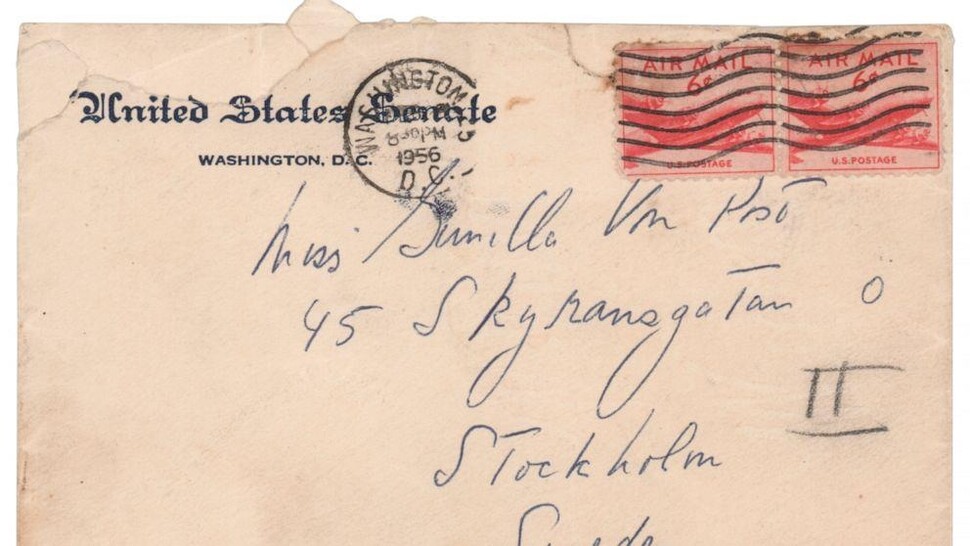 United States Senate
WASHINGTON, D. C.
WASHINGTON
830PM
1956
D.C.
AIR MAIL
6¢
U.S.POSTAGE
AIR MAIL
6¢
U.S.POSTAGE
Miss Gunilla Von Post
45 Skyransgatan O
II
Stockholm